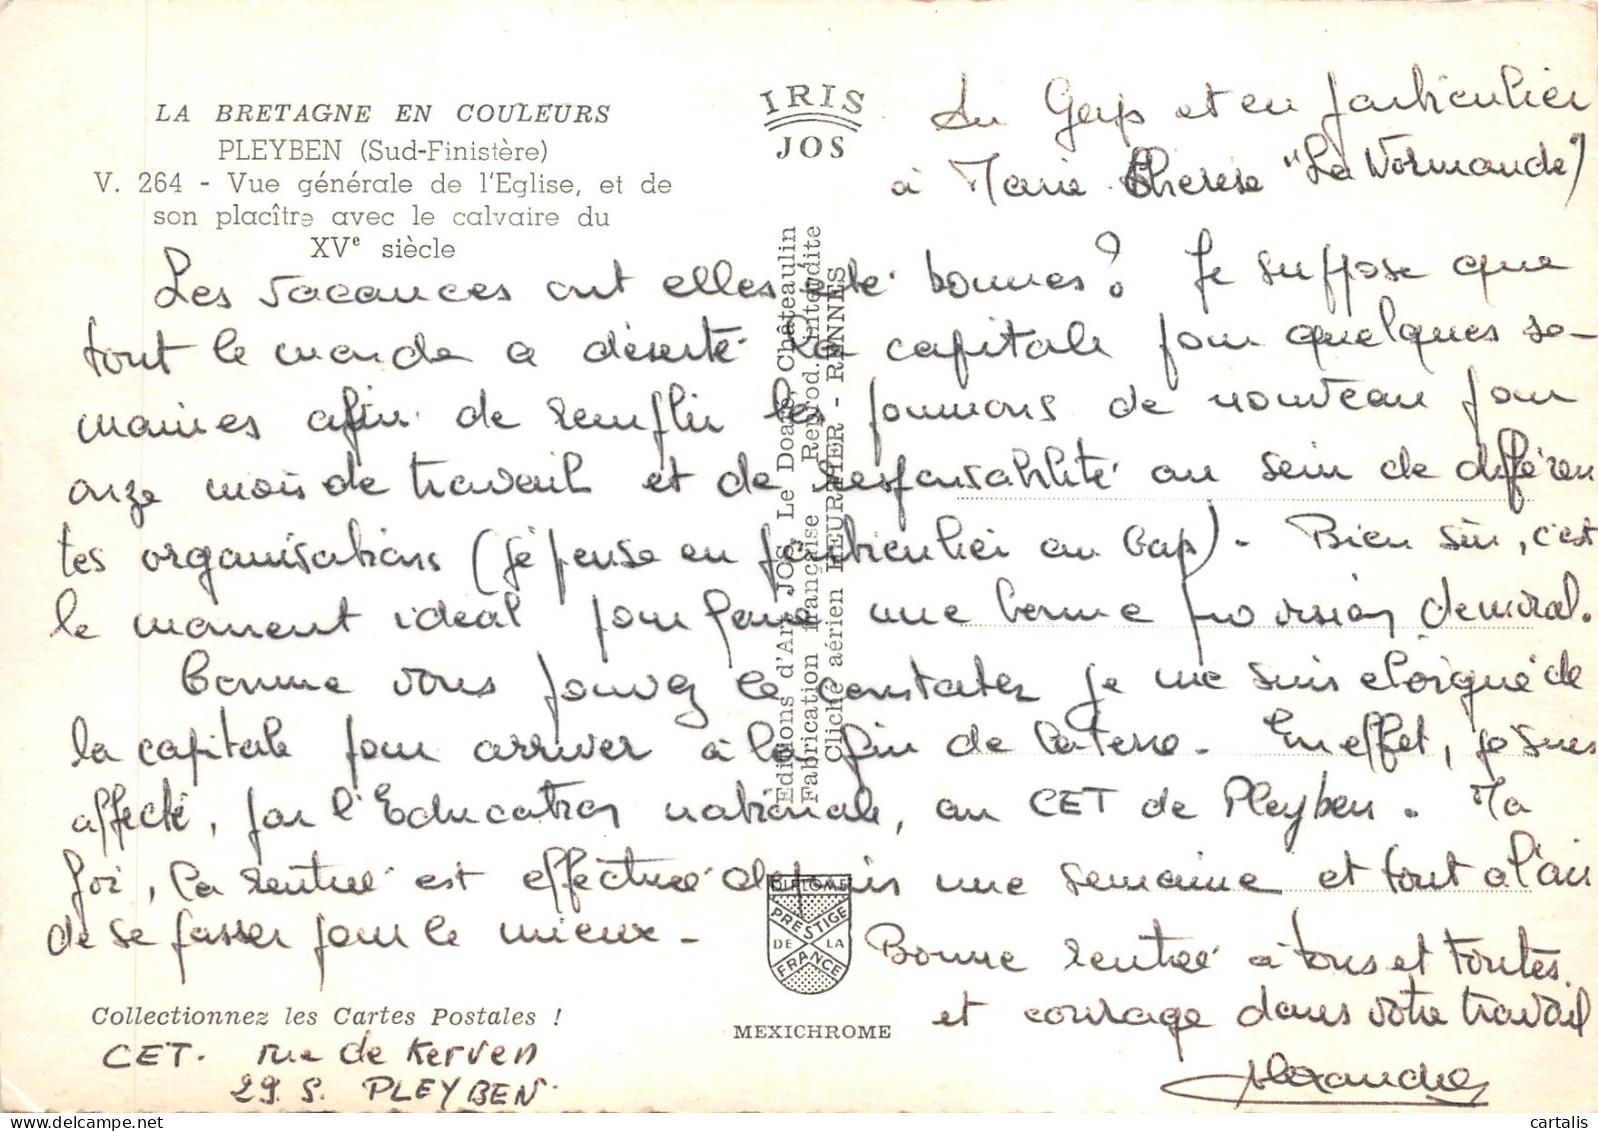 LA BRETAGNE EN COULEURS
PLEYBEN (Sud-Finistère)
V. 264 - Vue générale de l'Eglise, et de
son placître avec le calvaire du
XVe siècle
IRIS
JOS
Au et en particulier
à Marie Thérèse "La Normande")
Les vacances ont elles été bonnes? Je suppose que
tout le monde a déserté la capitale pour quelques se-
maines afin de remplir les poumons de nouveau pour
onze mois de travail et de responsabilité au sein de différen
tes organisations (je pense en particulier au Cap). Bien sûr, c'est
le moment idéal pour faire une bonne provision de moral.
Comme vous pouvez le constater je me suis éloigné de
la capitale pour arriver à la fin de la terre. En effet, je suis
affecté, par l'Education nationale, au CET de Pleyben. Ma
foi, la rentrée est effectuée depuis une semaine et tout a l'air
de se passer pour le mieux.
Bonne rentrée à tous et toutes
et courage dans votre travail
Alexandre
Editions d'Art JOS Le Doaré, Châteaulin
Fabrication française Reprod. interdite
Cliché aérien HEURTIER - RENNES
DIPLOME
PRESTIGE
DE LA
FRANCE
MEXICHROME
Collectionnez les Cartes Postales !
CET. rue de Kerven
29. S. PLEYBEN
cartalis